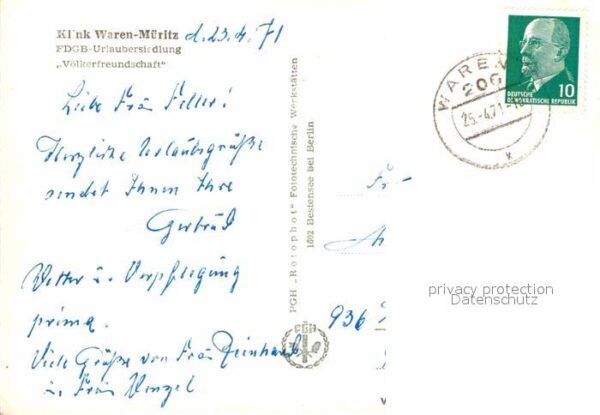 Klink Waren-Müritz d. 23.4.71
FDGB-Urlaubersiedlung
„Völkerfreundschaft"
Liebe Frau Feller!
Herzliche Urlaubsgrüße
sendet Ihnen Ihre
Gertrud
Wetter u. Verpflegung
prima.
Viele Grüße von Frau Reinhardt
u. Frau Wenzel
PGH „Rotophot" Fototechnische Werkstätten
1602 Bestensee bei Berlin
PGH
WAREN
206
25.-4.71
DEUTSCHE
DEMOKRATISCHE REPUBLIK
10
Fr
936
privacy protection
Datenschutz